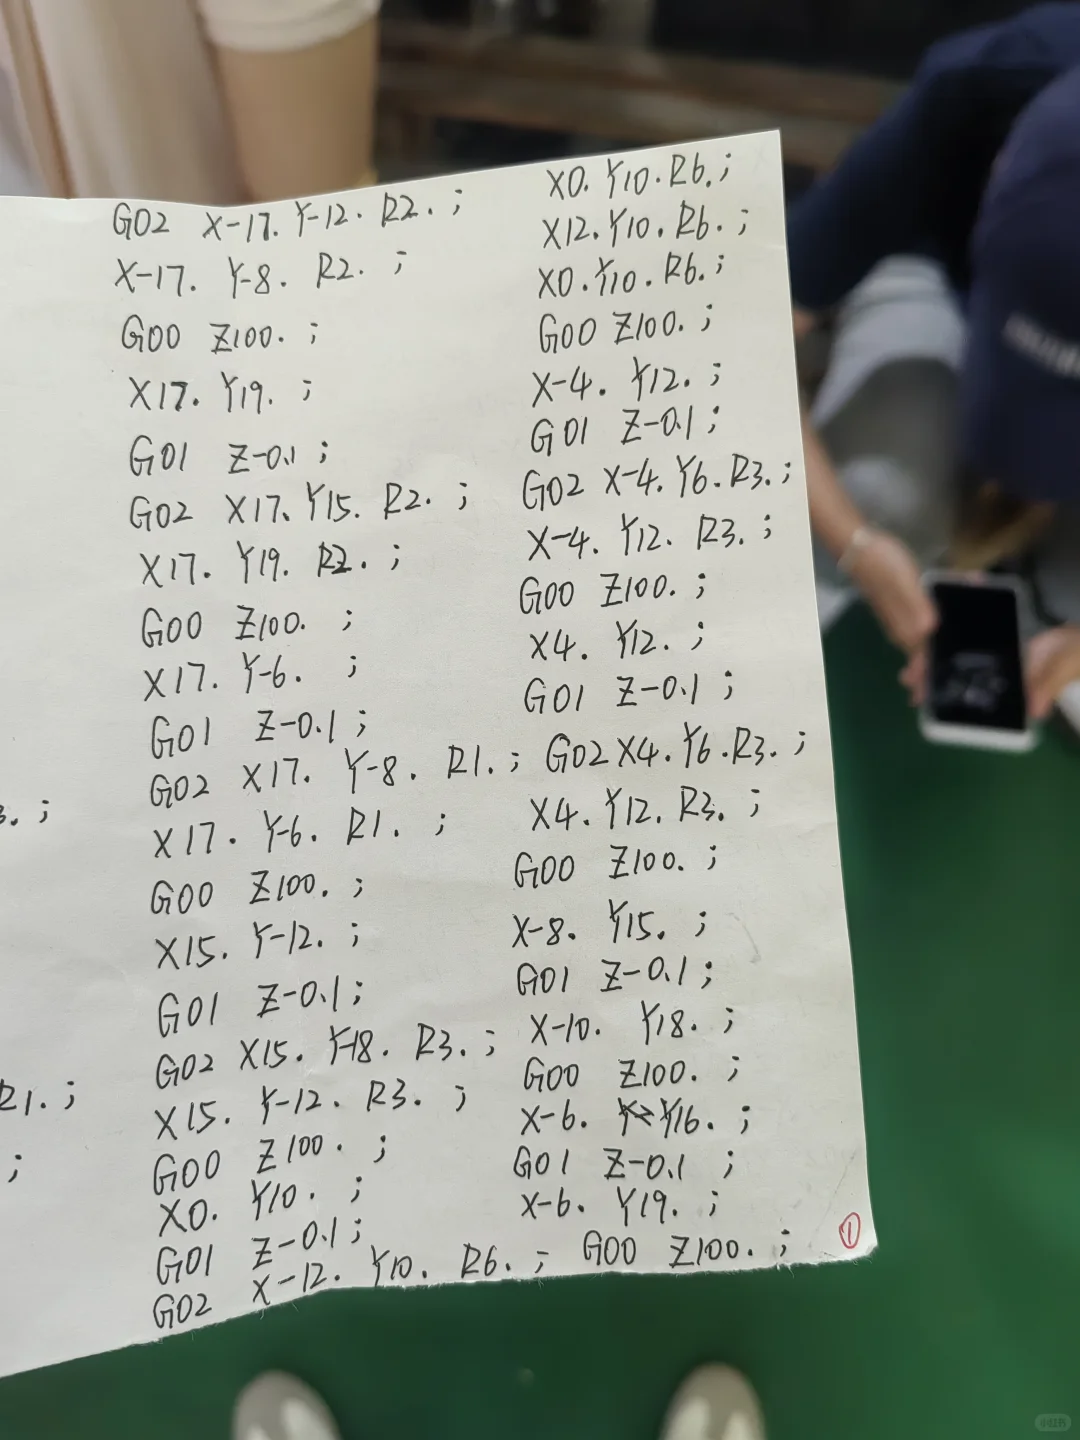 3. ;
R1. ;
;
G02 X-17. Y-12. R2. ;
X-17. Y-8. R2. ;
G00 Z100. ;
X17. Y19. ;
G01 Z-0.1 ;
G02 X17. Y15. R2. ;
X17. Y19. R2. ;
G00 Z100. ;
X17. Y-6. ;
G01 Z-0.1 ;
G02 X17. Y-8. R1. ;
X17. Y-6. R1. ;
G00 Z100. ;
X15. Y-12. ;
G01 Z-0.1 ;
G02 X15. Y-18. R3. ;
X15. Y-12. R3. ;
G00 Z100. ;
X0. Y10. ;
G01 Z-0.1 ;
G02 X-12. Y10. R6. ;
X0. Y10. R6. ;
X12. Y10. R6. ;
X0. Y10. R6. ;
G00 Z100. ;
X-4. Y12. ;
G01 Z-0.1 ;
G02 X-4. Y6. R3. ;
X-4. Y12. R3. ;
G00 Z100. ;
X4. Y12. ;
G01 Z-0.1 ;
G02 X4. Y6. R3. ;
X4. Y12. R3. ;
G00 Z100. ;
X-8. Y15. ;
G01 Z-0.1 ;
X-10. Y18. ;
G00 Z100. ;
X-6. Y16. ;
G01 Z-0.1 ;
X-6. Y19. ;
G00 Z100. ;
①
小红书